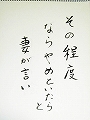 その程度
ならやめといたらと
妻が言い